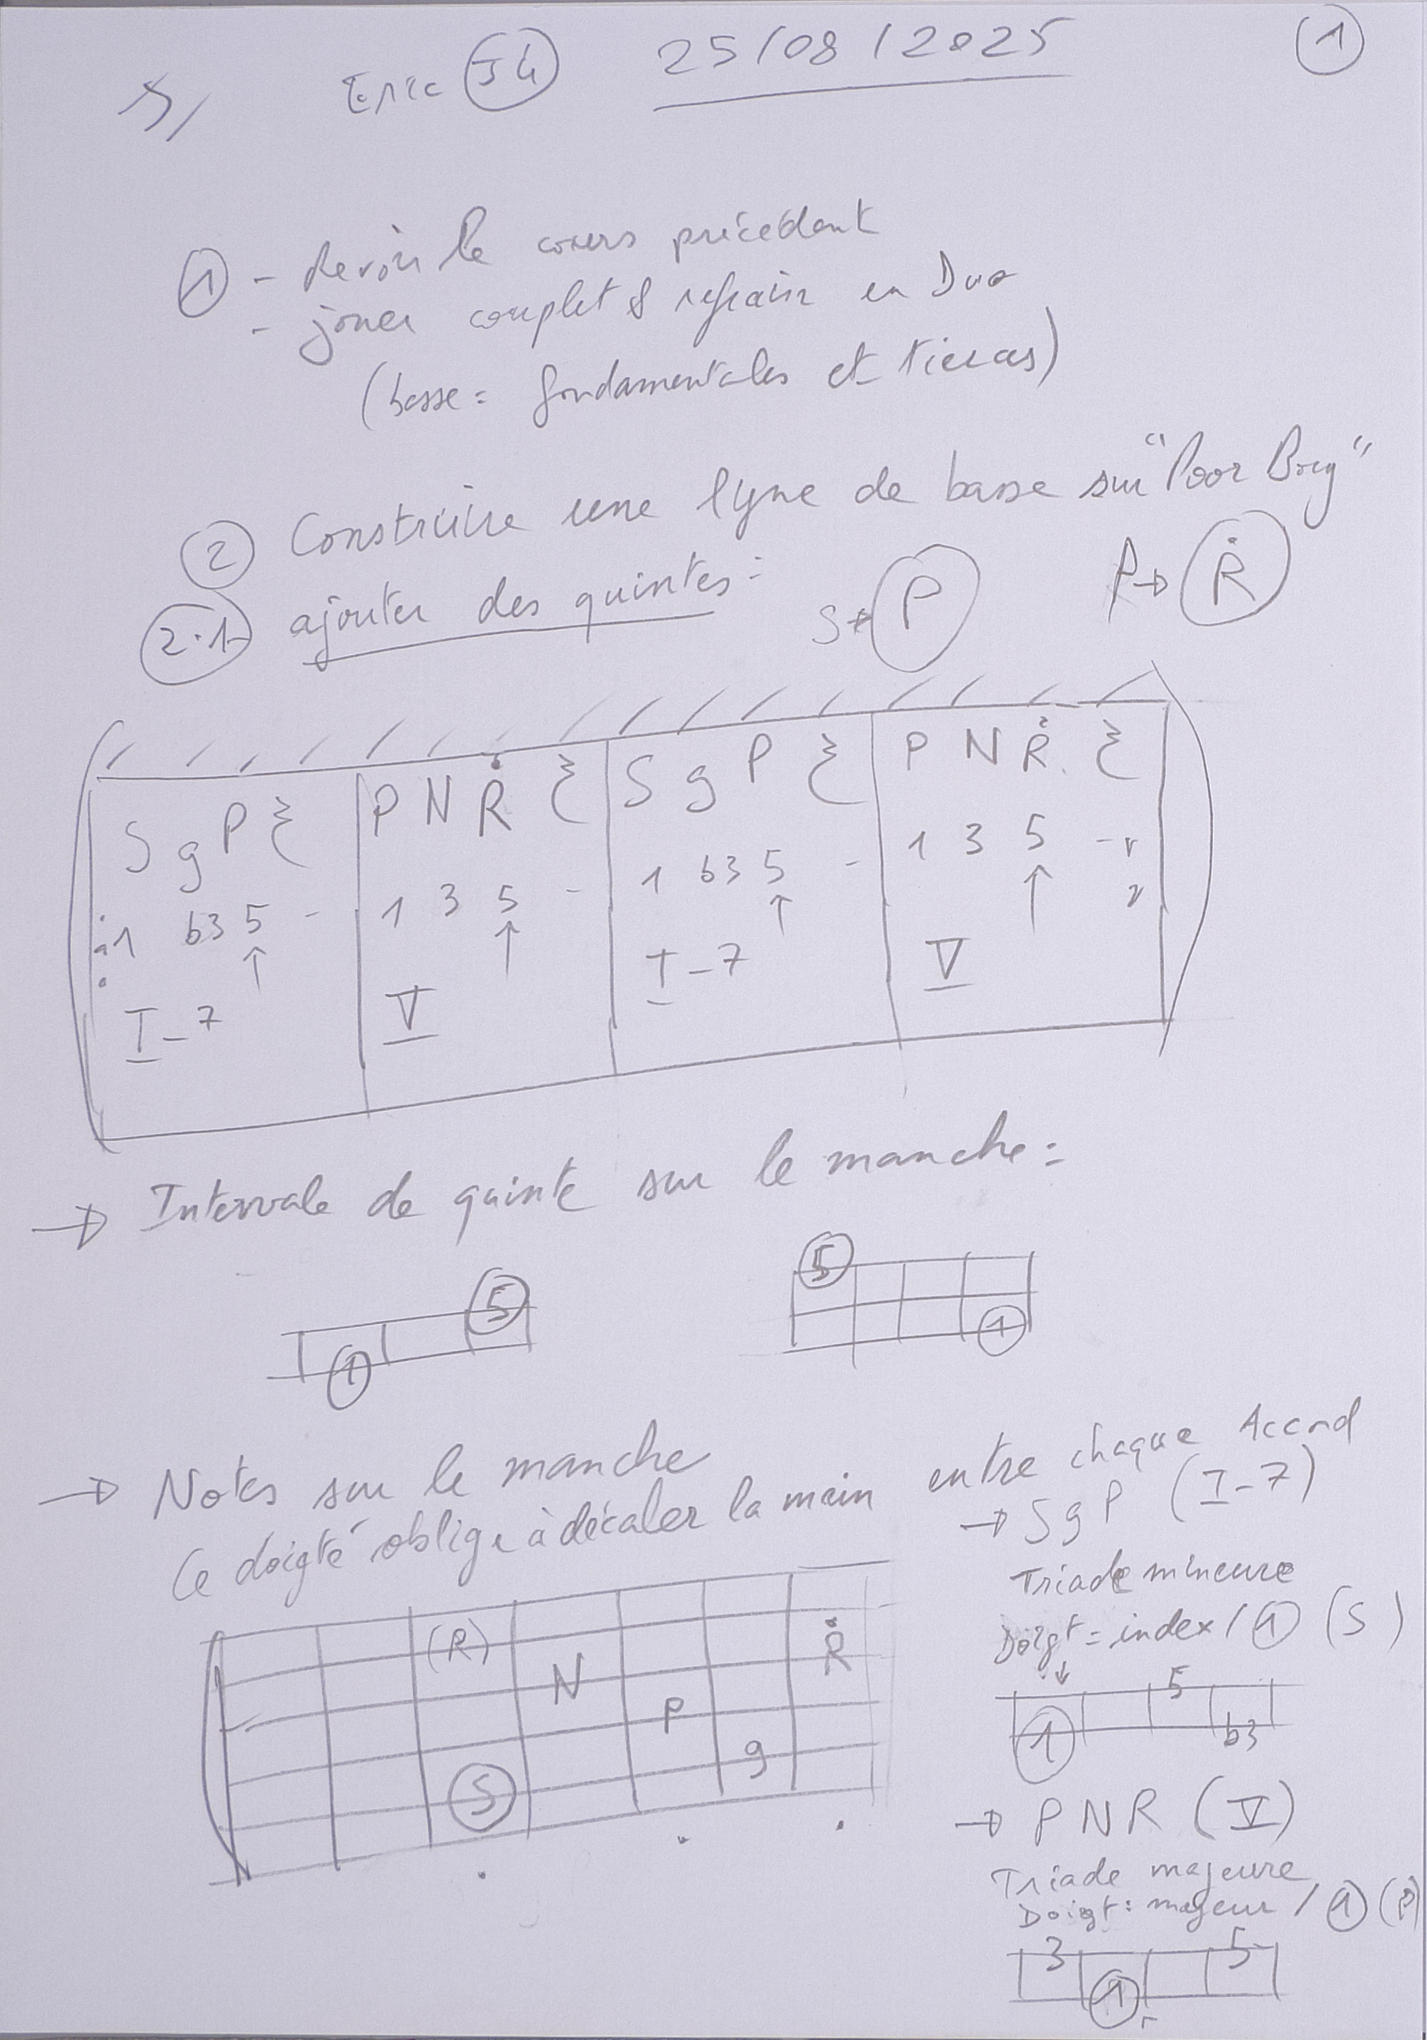 Eric J4 25/08/2025 1
1 - Revoir le cours précédent
- jouer couplet & refrain en Duo
(basse = fondamentales et tierces)
2 Construire une lyne de basse sur "Poor Boy"
2.1 ajouter des quintes : S→P P→Ṙ
S g P P N Ṙ S g P P N Ṙ
1 b3 5 - 1 3 5 - 1 b3 5 - 1 3 5 -
↑ ↑ ↑ ↑
I-7 V I-7 V
→ Intervale de quinte sur le manche :
5 5
1 1
→ Notes sur le manche
Ce doigté oblige à décaler la main entre chaque Accord
(R) N P g Ṙ
S
→ S g P (I-7)
Triade mineure
Doigt = index / 1 (S)
5
1 b3
→ P N R (V)
Triade majeure
Doigt : majeur / 1 (P)
3 5
1